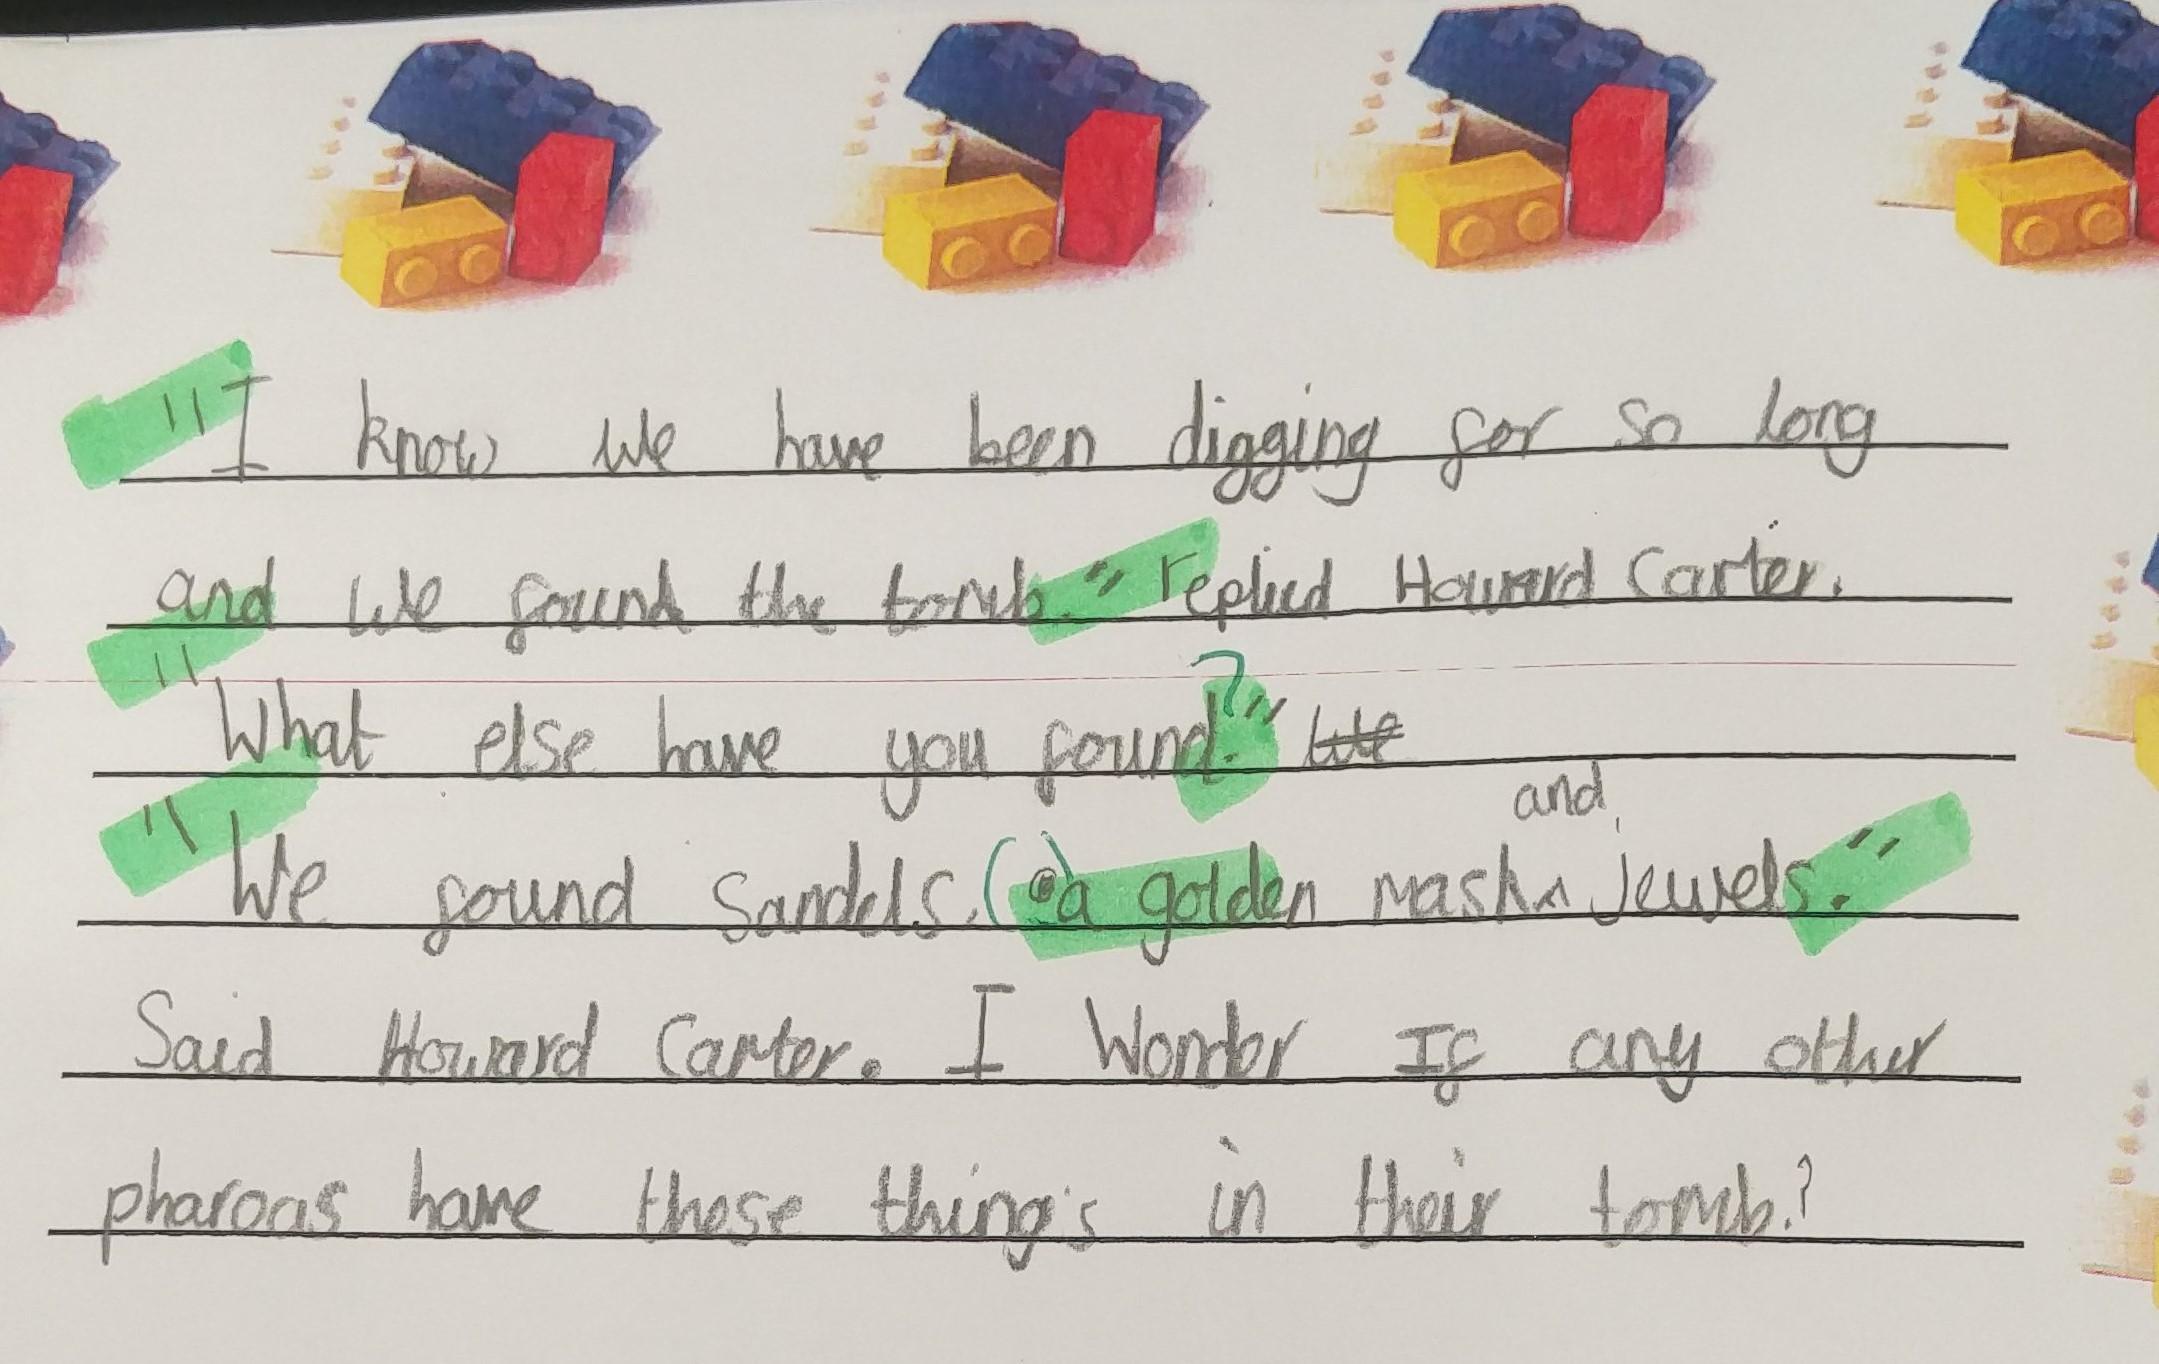 "I know we have been digging for so long
and we found the tomb." replied Howard Carter.
"What else have you found?"
"We found Sandels. a golden mask and jewels."
Said Howard Carter. I Wonder If any other
pharoas have these thing's in their tomb?